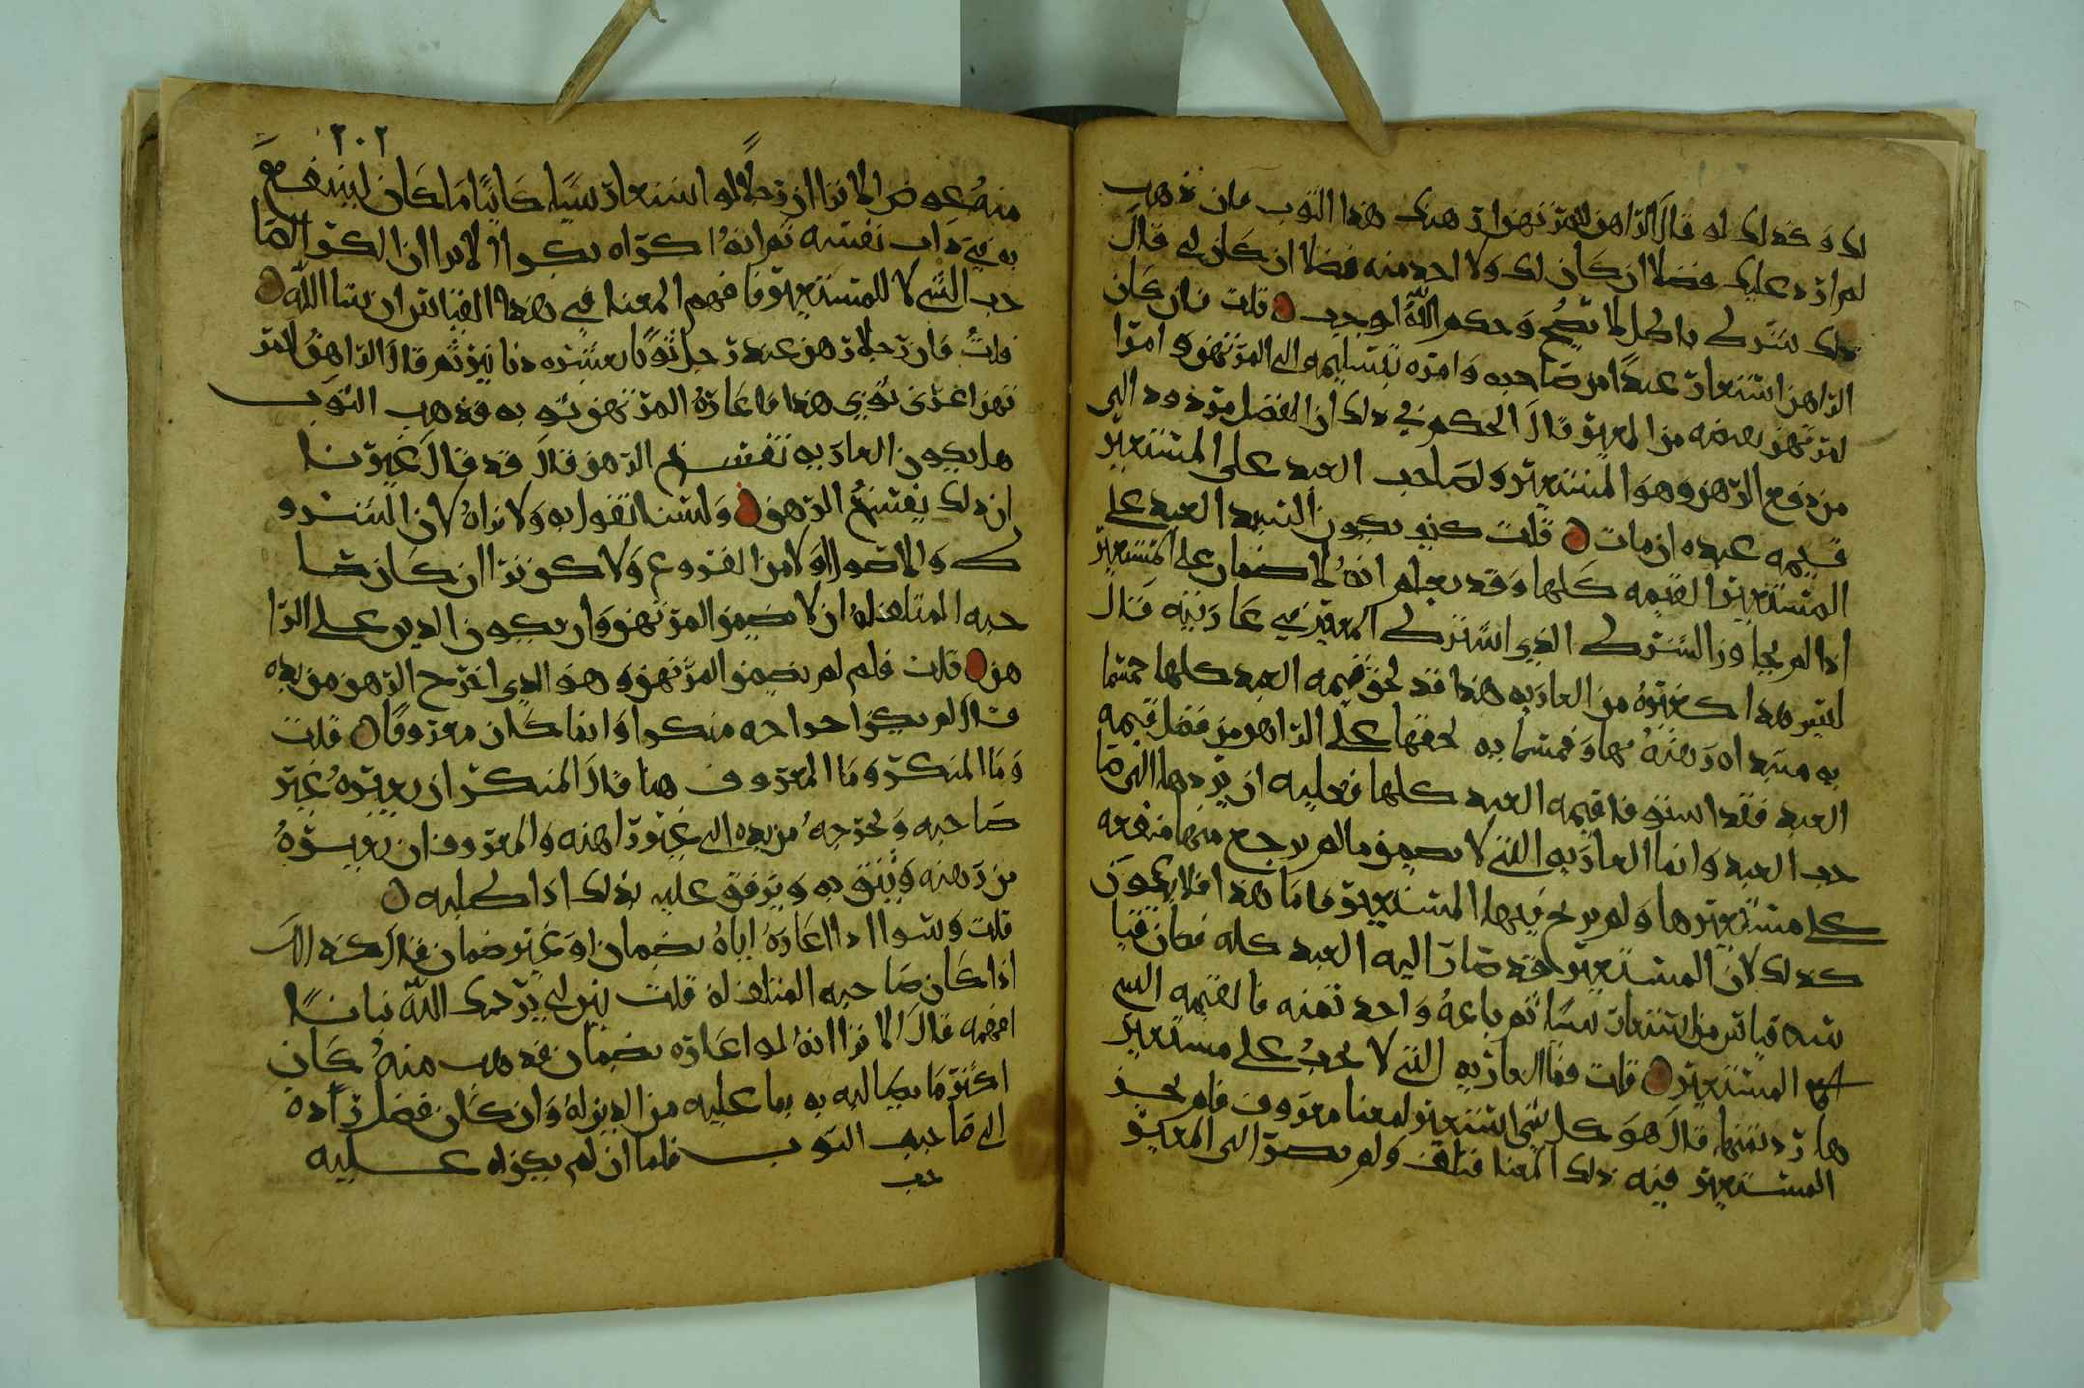 لك وكذلك لو قال الراهن للمرتهن ارهنك هذا الثوب فان ذهب
لم ارد عليك فضلا ان كان لك ولا اخذ منه فضلا ان كان لي قال
ذلك شرط باطل لا يصح وحكم الله اوجب قلت فان كان
الراهن استعار عبدا من صاحبه وامره بتسليمه الى المرتهن وامر ا
لمرتهن بقبضه من المعير قال الحكم في ذلك ان الفضل مردود الى
من دفع الرهن وهو المستعير ولصاحب العبد على المستعير
قيمه عبده ان مات قلت كيف يكون لسيد العبد على
المستعير القيمه كلها وقد يعلم انه لا ضمان على المستعير
اذا لم يجاوز الشرط الذي اشترط المعير في عاريته قال
ليس هذا كغيره من العاريه هذا قد لحق قيمه العبد كلها حتما
به مبتداه رهنه بها وختما به لحقها على الراهن من فضل قيمه
العبد فقد استوفا قيمه العبد كلها فعليه ان يردها الى صا
حب العبد وانما العاريه التي لا يضمن ما لم يرجع منها منفعه
على مستعيرها ولم يربح فيها المستعير فاما هذا فلا يكون
كذلك لان المستعير قد صار اليه العبد كله فكان قيا
سه قياس من استعار شيا ثم باعه واخد ثمنه فالقيمه التي
مع المستعير قلت فما العاريه التي لا يجب على مستعير
ها رد ثمنها قال هو كل شي استعير لمعنا معروف فلم يجز
المستعير فيه ذلك المعنا فتلف ولم يصر الى المعير
٢٠٢
منه عوض الا ترا ان رجلا لو استعار شيا كاينا ما كان لينتفع
به في ذات نفسه ثم انه اكراه بكرا الا ترا ان الكرا لصا
حب الشي لا للمستعير فافهم المعنا في هذا القياس ان شا الله
قلت فان رجلا رهن عند رجل ثوبا بعشره دنانير ثم قال الراهن للمر
تهن اعرني ثوبي هذا فاعاره المرتهن ثوبه فذهب الثوب
هل يكون العاريه تفسخ الرهن قال قد قال غيرنا
ان ذلك يفسخ الرهن ولسنا نقول به ولا نراه لان الشرو
ط والاصول اولا من الفروع ولا كن نرا ان كان صا
حبه المتلف له ان لا يضمن المرتهن وان يكون الدين على الرا
هن قلت فلم لم يضمن المرتهن وهو الذي اخرج الرهن من يده
قال لم يكن اخراجه منكرا وانما كان معروفا قلت
وما المنكر وما المعروف هنا قال المنكر ان يعيره غير
صاحبه ويخرجه من يده الى غير راهنه والمعروف ان يعيره
من رهنه ويثق به ويرفق عليه بذلك اذا طلبه
قلت وسوا اذا اعاره اياه بضمان او غير ضمان قال كذلك
اذا كان صاحبه المتلف له قلت بين لي يرحمك الله بيانا
افهمه قال الا ترا انه لو اعاره بضمان فذهب منه كان
اكثر ما يطالبه به بما عليه من الدين له وان كان فضل زاده
الى صاحب الثوب فلما ان لم يكن له عليه